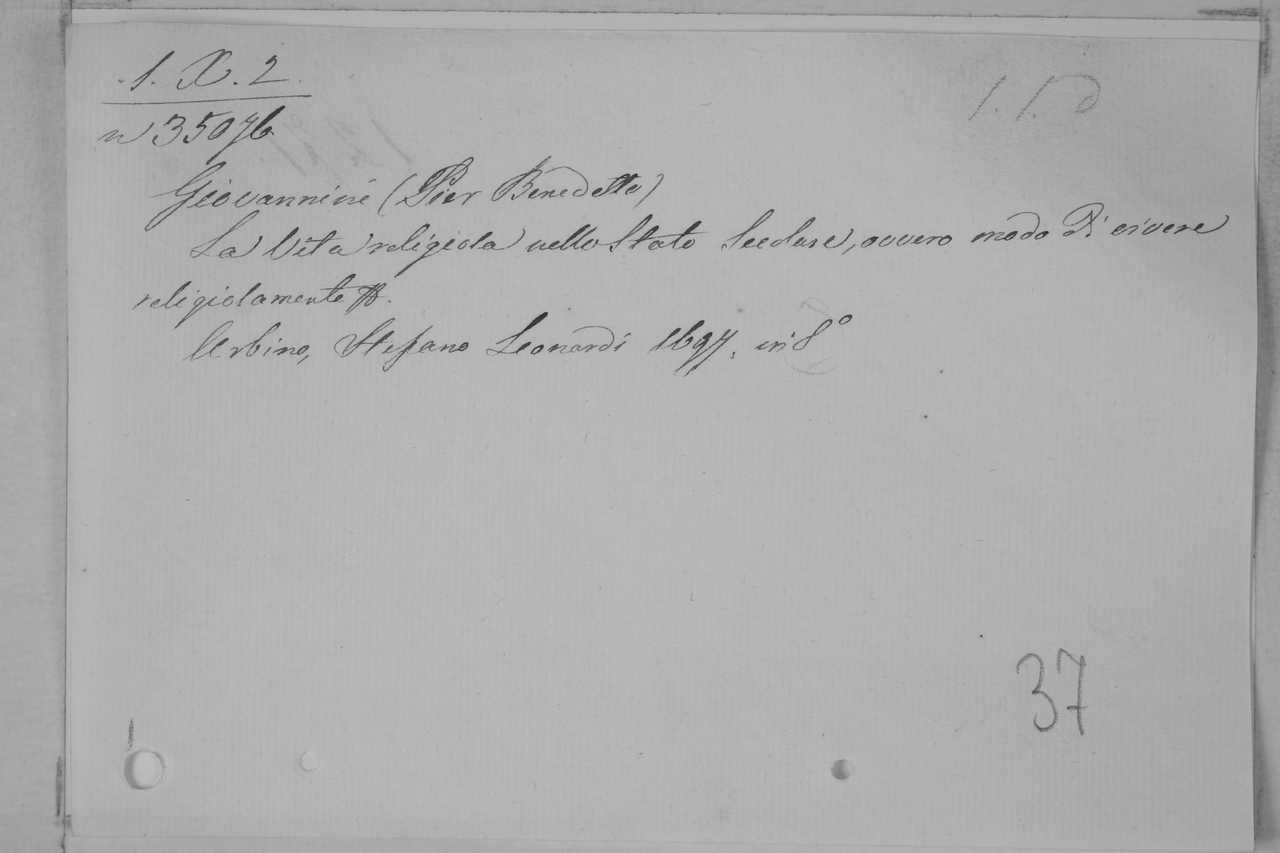 1. X. 2
n 35076
Giovannini (Pier Benedetto)
La Vita religiosa nello Stato Secolare, ovvero modo di vivere
religiosamente
Urbino, Stefano Leonardi 1697. in 8°
37